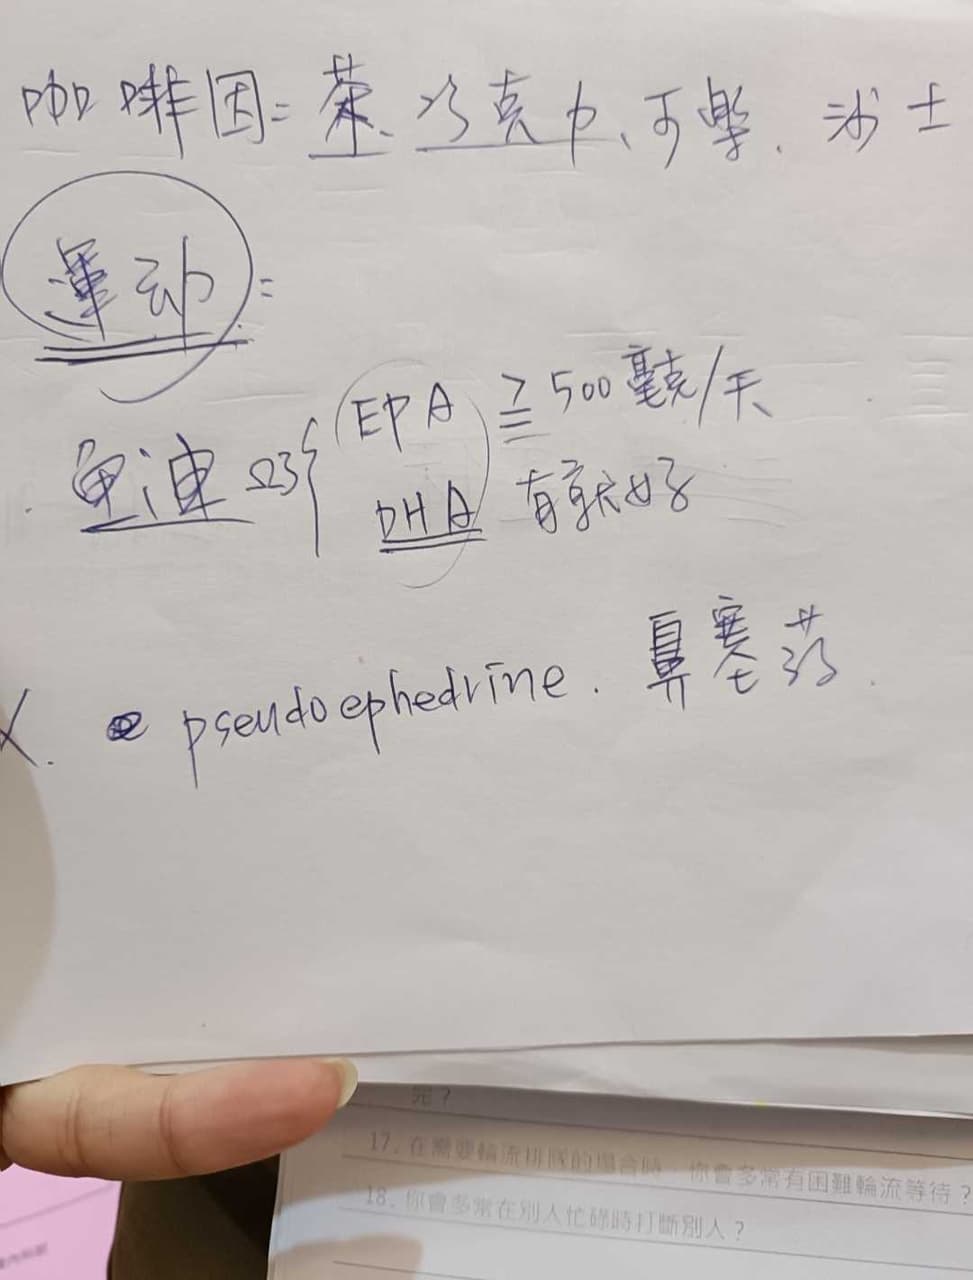 咖啡因=茶、巧克力、可樂、沙士
運动=
魚油 Ω3 { EPA ≧ 500毫克/天
DHA 有就好
X. pseudoephedrine. 鼻塞药.
完?
17. 在需要輪流排隊的場合時,你會多常有困難輪流等待?
18. 你會多常在別人忙碌時打斷別人?